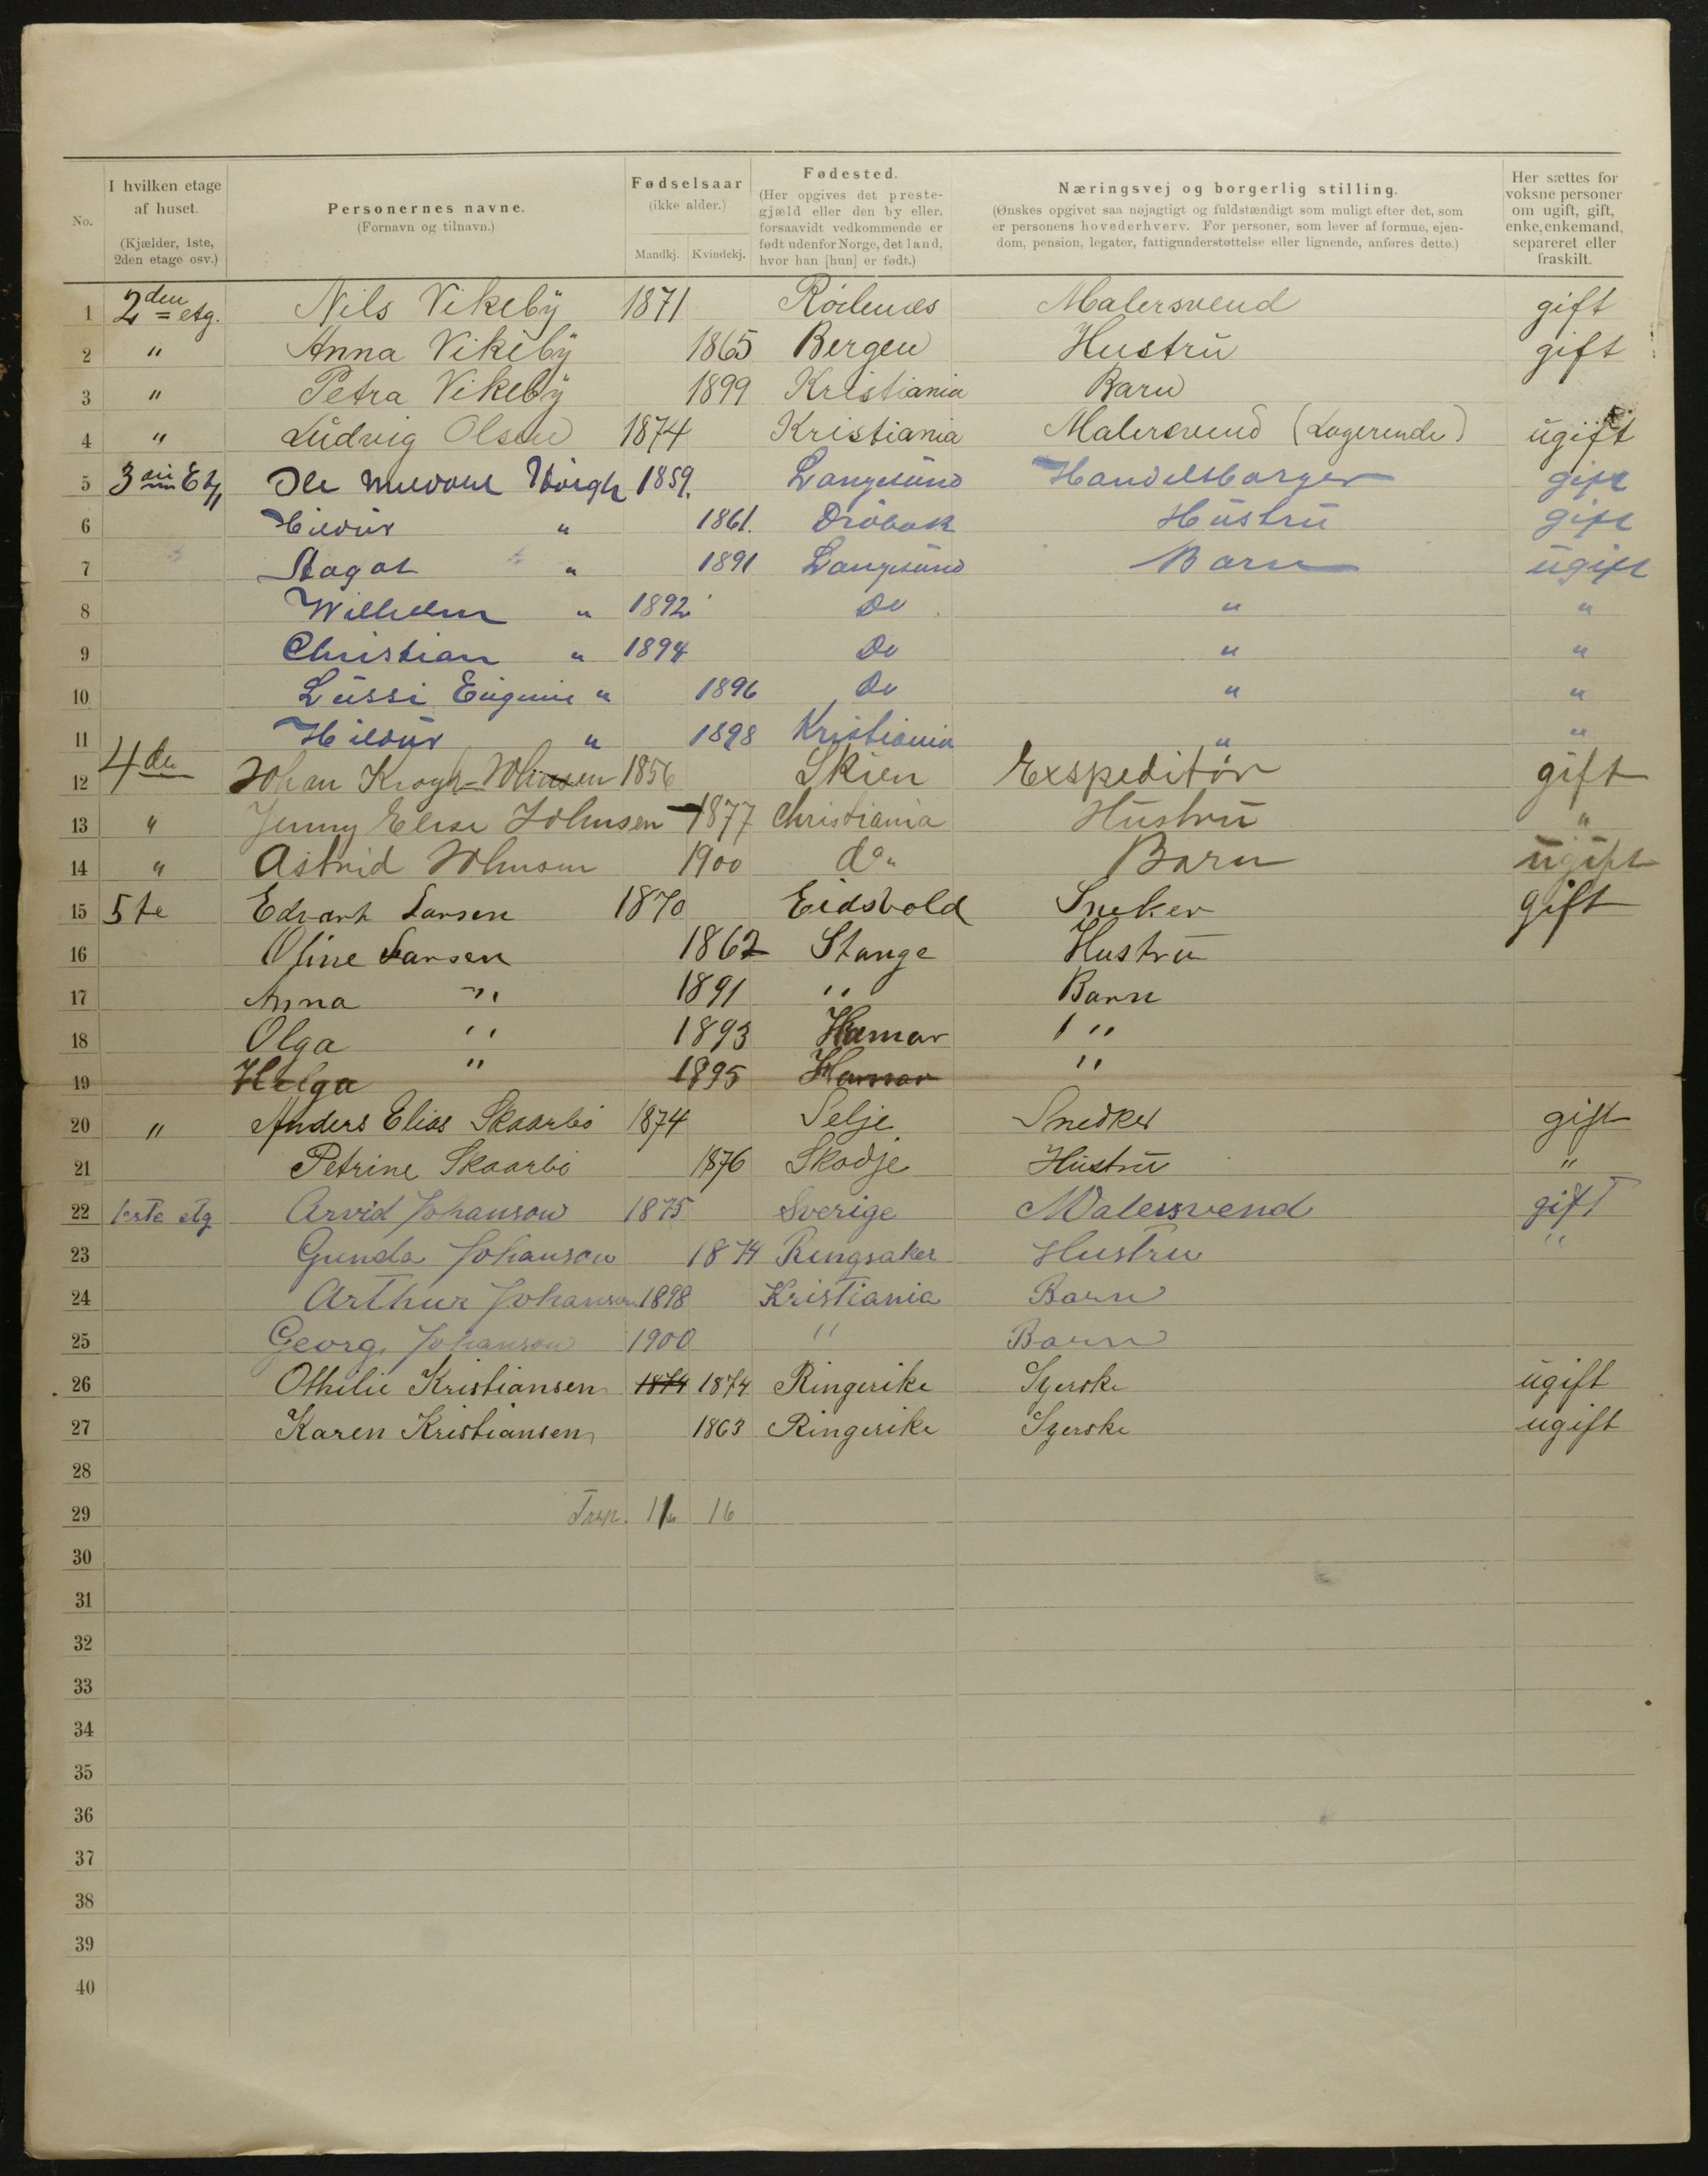 No.
I hvilken etage af huset. (Kjælder, 1ste, 2den etage osv.)
Personernes navne. (Fornavn og tilnavn.)
Fødselsaar (ikke alder.) Mandkj. Kvindekj.
Fødested. (Her opgives det prestegjæld eller den by eller, forsaavidt vedkommende er født udenfor Norge, det land, hvor han [hun] er født.)
Næringsvej og borgerlig stilling. (Ønskes opgivet saa nøjagtigt og fuldstændigt som muligt efter det, som er personens hovederhverv. For personer, som lever af formue, ejendom, pension, legater, fattigunderstøttelse eller lignende, anføres dette.)
Her sættes for voksne personer om ugift, gift, enke, enkemand, separeret eller fraskilt.
1 2den etg. Nils Vikeby 1871 Rödenæs Malersvend gift
2 " Anna Vikeby 1865 Bergen Hustru gift
3 " Petra Vikeby 1899 Kristiania Barn
4 " Ludvig Olsen 1874 Kristiania Malersvend (Logerende) ugift
5 3die Etg Ole 1859. Langesund Handelsborger gift
6 Hildur " 1861. Dröbak Hustru gift
7 Aagot " 1891 Langesund Barn ugift
8 Wilhelm " 1892 Do " "
9 Christian " 1894 Do " "
10 Lussi Eugenie " 1896 Do " "
11 Hildur " 1898 Kristiania " "
12 4de Johan Krogh-Johnsen 1856 Skien Exspeditör gift
13 " Jenny Elise Johnsen 1877 Christiania Hustru "
14 " Astrid Johnsen 1900 do " Barn ugift
15 5te Edvart Larsen 1870 Eidsvold Sneker gift
16 Oline Larsen 1862 Stange Hustru
17 Anna " 1891 " Barn
18 Olga " 1893 Hamar "
19 Helga " 1895 Hamar "
20 " Anders Elias Skaarbö 1874 Selje Snedker gift
21 Petrine Skaarbö 1876 Skodje Hustru "
22 1ste etg Arvid Johanson 1875 Sverige Malersvend gift
23 Gunda Johanson 1874 Ringsaker Hustru "
24 Arthur Johanson 1898 Kristiania Barn
25 Georg Johanson 1900 " Barn
26 Othilie Kristiansen 1874 1874 Ringerike Syerske ugift
27 Karen Kristiansen 1863 Ringerike Syerske ugift
28
29 11 16
30
31
32
33
34
35
36
37
38
39
40